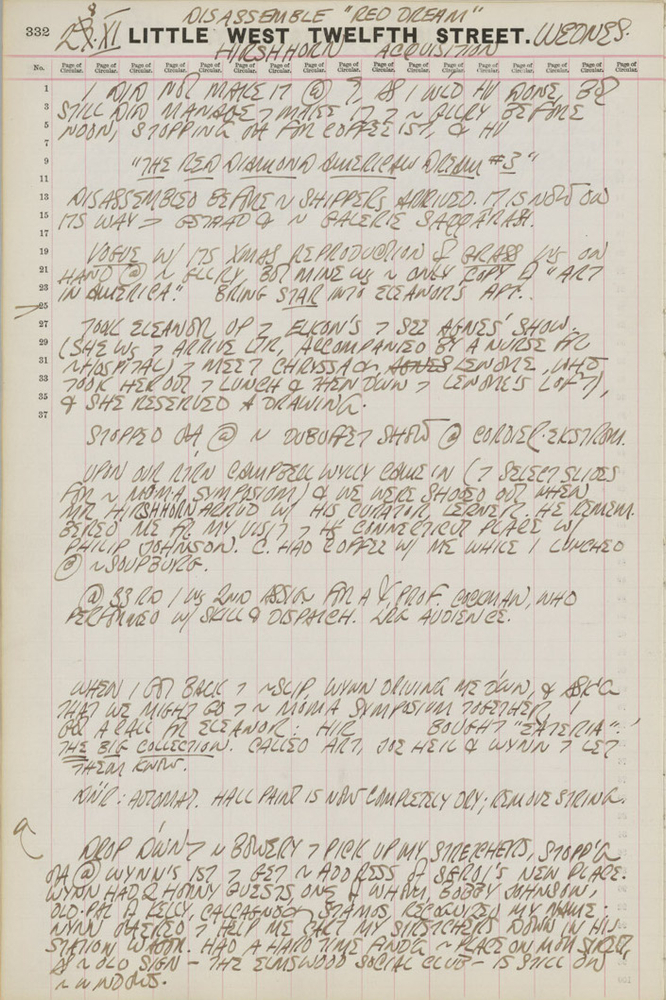 DISASSEMBLE "RED DREAM"
332 28.XI LITTLE WEST TWELFTH STREET. WEDNES.
HIRSHHORN ACQUISITION
No. Page of Circular. Page of Circular. Page of Circular. Page of Circular. Page of Circular. Page of Circular. Page of Circular. Page of Circular. Page of Circular. Page of Circular. Page of Circular. Page of Circular. Page of Circular. Page of Circular. Page of Circular. Page of Circular.
1 I DID NOT MAKE IT @ 9, AS I WLD HV DONE, BUT
3 STILL DID MANAGE 7 MAKE IT 7 ~ GLLRY BEFORE
5 NOON, STOPPING OFF FOR COFFEE 1ST, & HV
7
9 "THE RED DIAMOND AMERICAN DREAM #3"
11
13 DISASSEMBLED BEFORE ~ SHIPPERS ARRIVED. IT IS NOW ON
15 ITS WAY > GSTAAD & ~ GALERIE SAQQARAH.
17
19 VOGUE W/ ITS XMAS REPRODUCTION OF GRASS WS ON
21 HAND @ ~ GLLRY, BUT MINE WS ~ ONLY COPY OF "ART
23 IN AMERICA." BRING STAR INTO ELEANOR'S APT..
25
27 TOOK ELEANOR UP 7 ELKON'S 7 SEE AGNES' SHOW.
29 (SHE WS 7 ARRIVE LTR, ACCOMPANIED BY A NURSE FR
31 ~ HOSPITAL) 7 MEET CHRYSSA & AGNES LENORE, WHO
33 TOOK HER OUT 7 LUNCH & THEN DWN 7 LENORE'S LOFT),
35 & SHE RESERVED A DRAWING.
37
STOPPED OFF @ ~ DUBUFFET SHOW @ CORDIER-EKSTROM.
UPON OUR RTRN CAMPBELL WYLLY COME IN (7 SELECT SLIDES
FOR ~ MOMA SYMPOSIUM) & WE WERE SHOOED OUT WHEN
MR HIRSHHORN ARRVD W/ HIS CURATOR, LERNER. HE REMEM
BERED ME FR MY VISIT 7 HS CONNECTICUT PLACE W/
PHILIP JOHNSON. C. HAD COFFEE W/ ME WHILE I LUNCHED
@ ~ SOUPBURG.
@ 33RD I WS 2ND ASSIGN FOR A PROF. WHO
PERFORMED W/ SKILL & DISPATCH. LRG AUDIENCE.
WHEN I GOT BACK 7 ~ SLIP, WYNN DRIVING ME DWN, & ASK'G
THAT WE MIGHT GO 7 ~ MOMA SYMPOSIUM TOGETHER, I
GOT A CALL FR ELEANOR: HIR BOUGHT "EATERIA":
THE BIG COLLECTION. CALLED ART, JOE HEIL & WYNN 7 LET
THEM KNOW.
DIN'R: AUTOMAT. HALL PAINT IS NOW COMPLETELY DRY; REMOVE STRING.
DROP DWN 7 ~ BOWERY 7 PICK UP MY STRETCHERS, STOPP'G
OFF @ WYNN'S 1ST 7 GET ~ ADDRESS OF SEROI'S NEW PLACE.
WYNN HAD 2 GUESTS, ONE OF WHOM, BOBBY JOHNSON,
OLD PAL OF KELLY, CALCAGNO & STAMOS, RECOGNIZED MY NAME.
WYNN OFFERED 7 HELP ME CART MY STRETCHERS DOWN IN HIS
STATION WAGON. HAD A HARD TIME FIND'G ~ PLACE ON MOTT STREET,
AS ~ OLD SIGN — THE ELMSWOOD SOCIAL CLUB — IS STILL ON
~ WINDOWS.